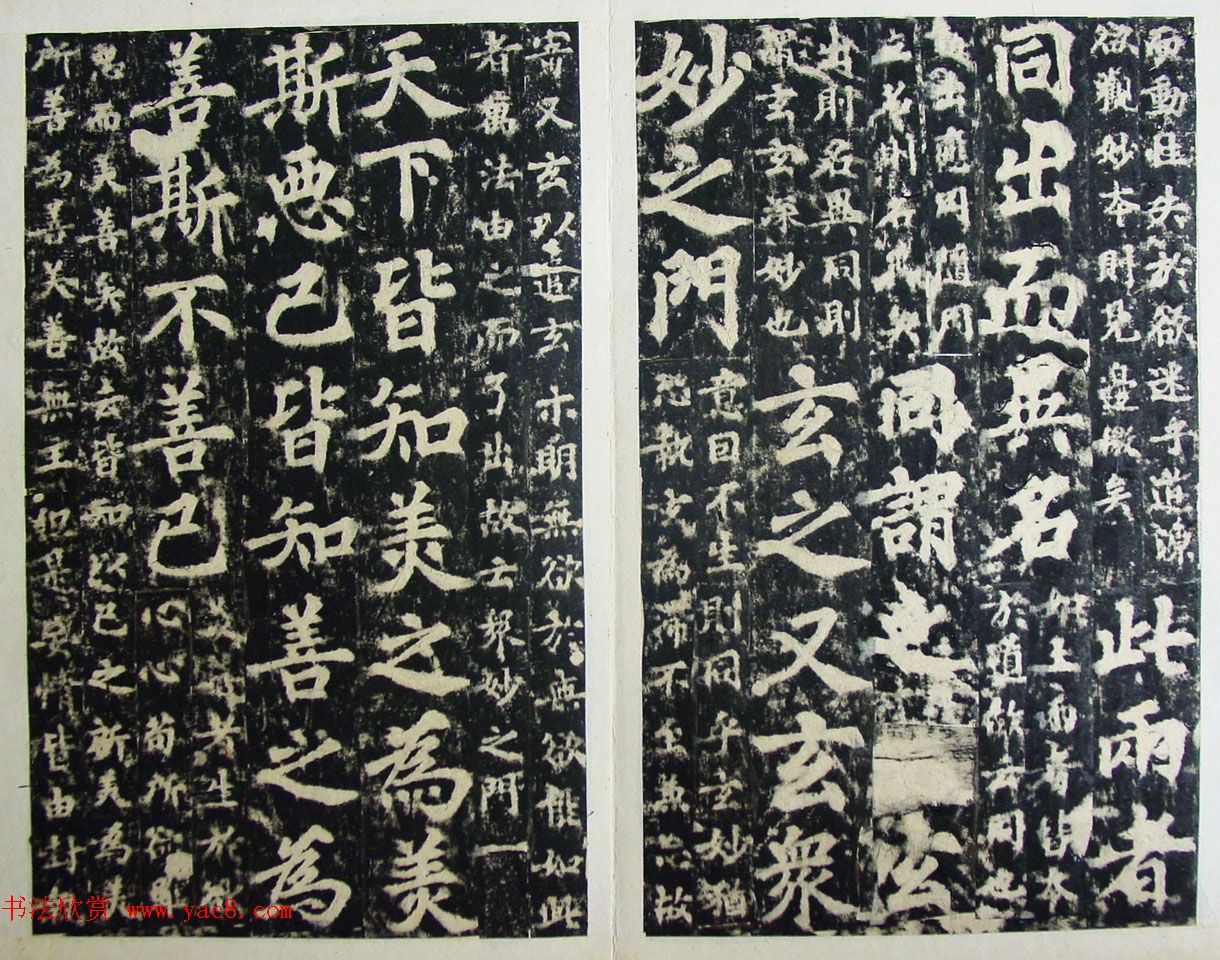 而動性失於欲迷乎道源
欲觀妙本則見邊徼矣
此兩者
同出而異名
如上兩者皆本
於道故云同也
出應用
同謂之玄
出則名異同則
玄玄深妙也
玄之又玄衆
妙之門
意因不生則同乎玄妙猶
恐執玄為滯不至兼忘故
寄又玄以遣玄示明無欲於無欲能如此
者萬法由之而了出故云衆妙之門一
天下皆知美之為美
斯惡已皆知善之為
善斯不善已
者生於
心心苟所欲
思而美善矣故云皆知以己之所美為美
所善為善美善無主和是妄情皆由封
书法欣赏 www.yac8.com